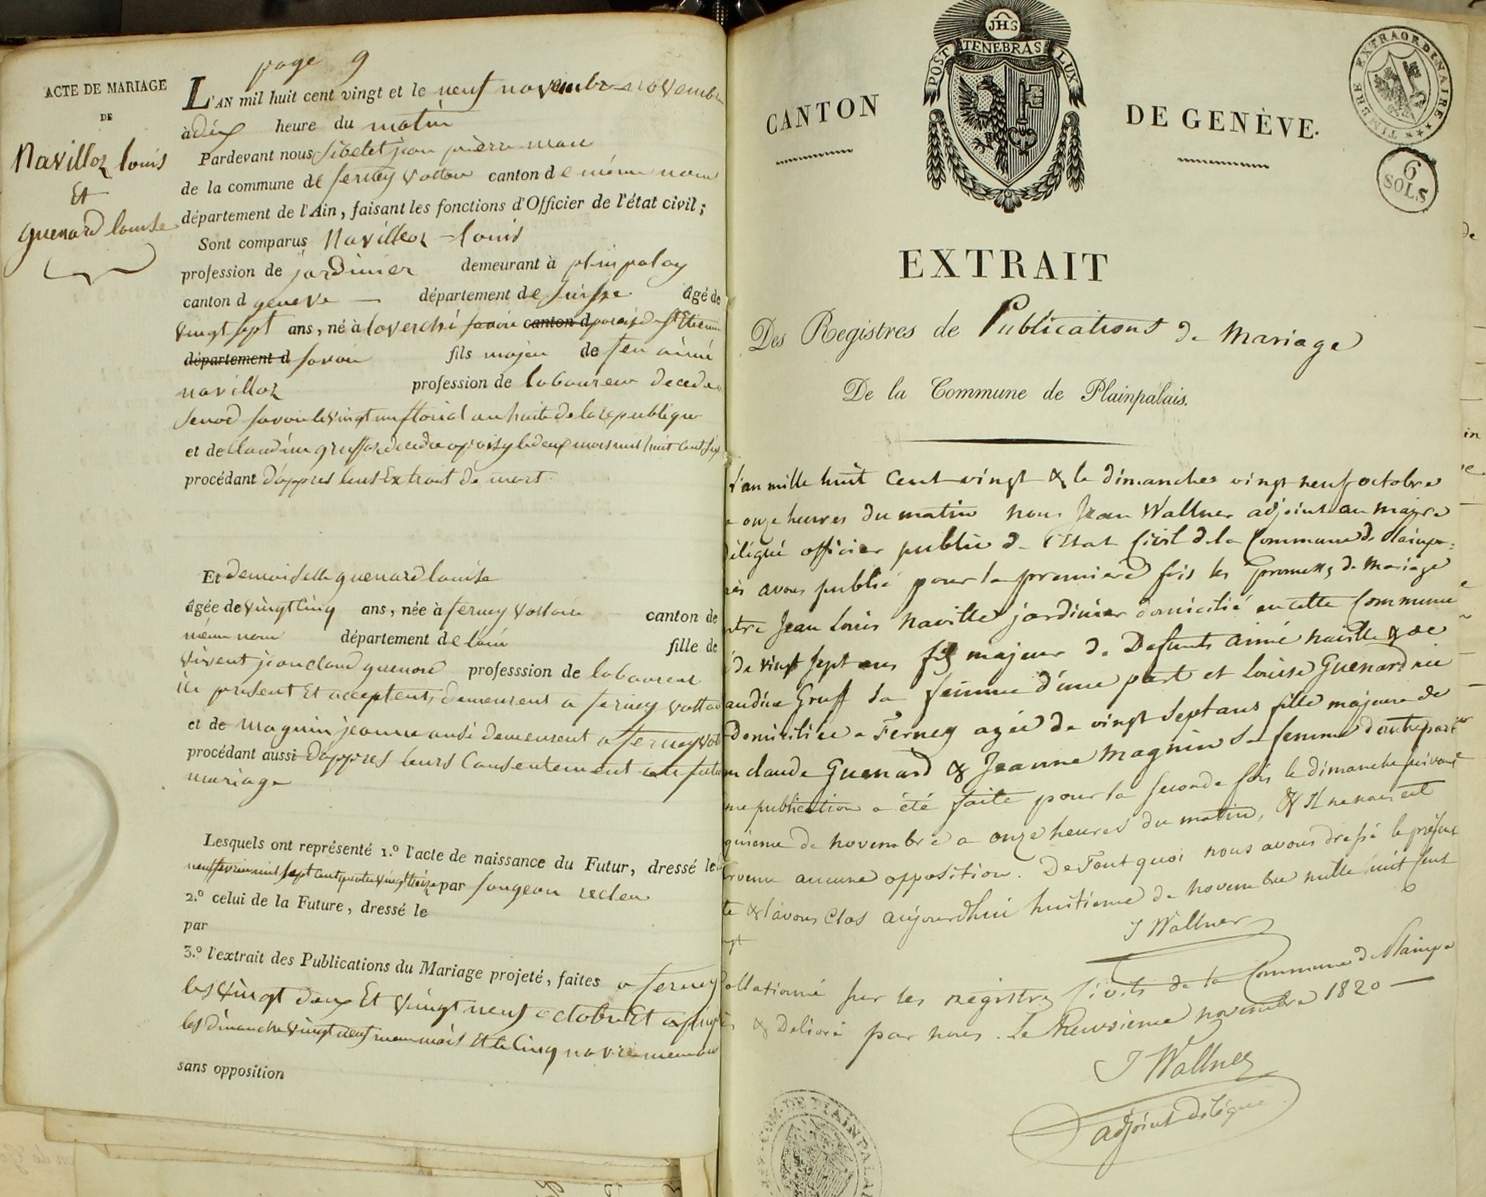 page 9
ACTE DE MARIAGE
DE
Navilloz louis
Et
Guenard louise
L'AN mil huit cent vingt et le neuf novembre novembre
à dix heure du matin
Pardevant nous jean pierre maire
de la commune de ferney voltaire canton de même nom
département de l'Ain, faisant les fonctions d'Officier de l'état civil;
Sont comparus Navilloz louis
profession de jardinier demeurant à plinpalay
canton d geneve département de suisse âgé de
vingt sept ans, né à loverchi savoie canton d paroisse st Etienne
département d savoie fils majeur de feu aimé
navilloz profession de laboureur decede
savoie le vingt un floreal an huite de la republique
et de Claudine decede le deux mars mil huit cent six
procédant d'appres leurs Extrait de mort
Et demoiselle guenard louise
âgée de vingt cinq ans, née à ferney voltaire canton de
même nom département de lain fille de
vivent jean claud guenard professsion de laboureur
ici present Et acceptent, demeurent a ferney voltaire
et de magnin jeanne ausi demeurent a ferney vol
procédant aussi d'appres leurs Consentement au futur
mariage
Lesquels ont représenté 1.º l'acte de naissance du Futur, dressé le
neuf fevrier mil sept cent quatre vingt treize par songeon recteur
2.º celui de la Future, dressé le
par
3.º l'extrait des Publications du Mariage projeté, faites a ferney
les vingt deux Et vingt neuf octobre Et a plinp
les dimanche vingt neuf meme mois Et le Cinq novembre
sans opposition
JHS
POST TENEBRAS LUX
CANTON DE GENÈVE.
TIMBRE EXTRAORDINAIRE
6
SOLS
EXTRAIT
Des Registres de Publications de Mariage
De la Commune de Plainpalais.
L'an mille huit Cent vingt & le dimanche vingt neuf octobre
a onze heures du matin nous Jean Wallner adjoint au mayre
délégué officier public de l'Etat Civil de la Commune de Plainpa-
avons publié pour la premiere fois les promesses de Mariage
entre Jean Louis Naville jardinier domicilié en cette Commune
de vingt sept ans fils majeur de Defunts aimé naville & de
Claudine Gruff sa femme d'une part et Louise Guenard née
domiciliée a Ferney agée de vingt sept ans fille majeure de
claude Guenard & Jeanne Magnin sa femme d'autre part
publication a été faite pour la seconde fois le dimanche suivant
cinquieme de novembre a onze heures du matin, & il ne nous est
parvenu aucune opposition. De Tout quoi nous avons dressé le présent
& l'avons Clos aujourdhui huitieme de novembre mille huit Cent
vingt
J Wallner
Collationné sur les registres Civils de la Commune de Plainpa
& Délivré par nous. Le Neuvieme novembre 1820
J Wallner
adjoint délégué
COM. DE PLAINPALAIS